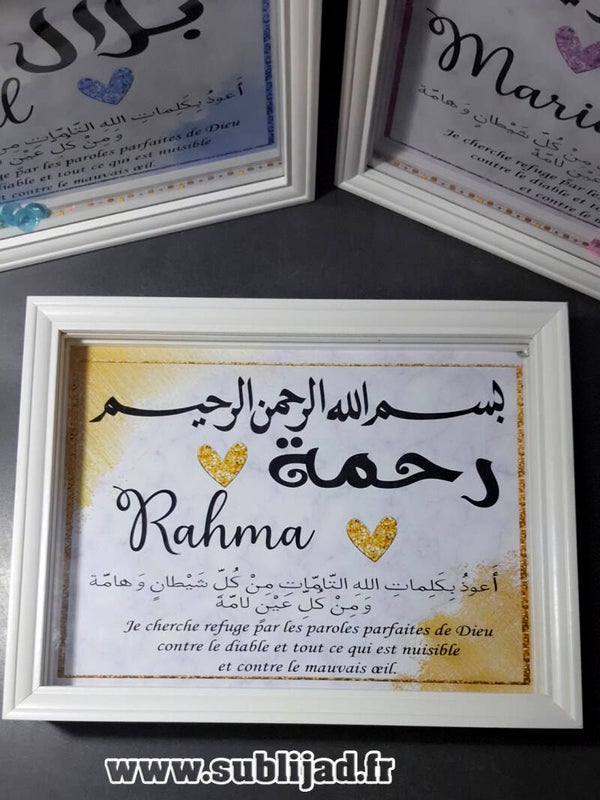 بلال
أَعوذُ بِكَلِماتِ اللهِ التّامّاتِ
وَمِنْ كُلِّ عَيْنٍ
par les paroles parfaites de Dieu
diable et tout ce qui est nuisible
et contre le mauvais œil.
كُلِّ شَيْطانٍ وَهامّة
Je cherche refuge par les
contre le diable et
et contre
بسم الله الرحمن الرحيم
رحمة
Rahma
أَعوذُ بِكَلِماتِ اللهِ التّامّاتِ مِنْ كُلّ شَيْطانٍ وَهامّة
وَمِنْ كُلِّ عَيْنٍ لامّة
Je cherche refuge par les paroles parfaites de Dieu
contre le diable et tout ce qui est nuisible
et contre le mauvais œil.
www.sublijad.fr